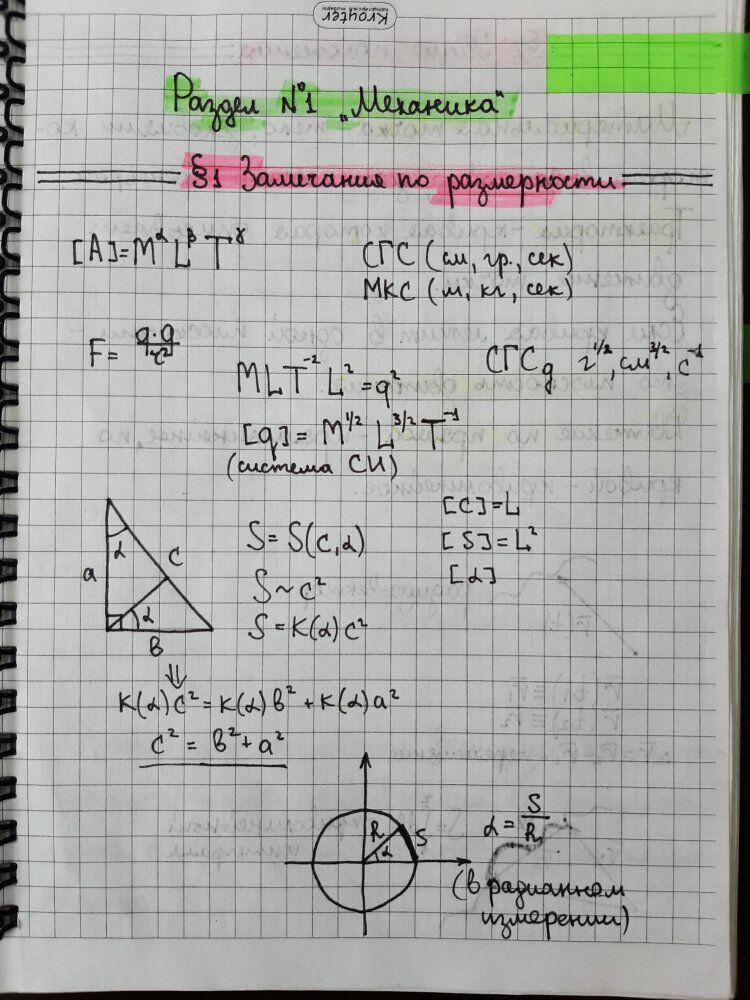 Kroyter
Раздел №1 „Механика"
§1 Замечания по размерности
[A]=M^α L^β T^γ
СГС (см, гр., сек)
МКС (м, кг, сек)
F = q·q / r²
MLT⁻² L² = q²
СГС_q г^1/2, см^3/2, с⁻¹
[q] = M^1/2 L^3/2 T⁻¹
(система СИ)
a
α
C
α
B
S = S(c,α)
S ~ c²
S = K(α) c²
[C] = L
[S] = L²
[α]
⇓
K(α) c² = K(α) в² + K(α) a²
c² = в² + a²
R
α
S
α = S / R
(в радианном
измерении)